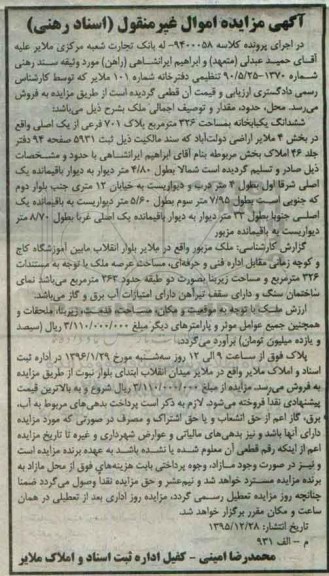 آگهی مزایده اموال غیرمنقول (اسناد رهنی)
در اجرای پرونده کلاسه ۹۴۰۰۰۵۸- له بانک تجارت شعبه مرکزی ملایر علیه
آقای حمید عبدلی (متعهد) و ابراهیم ایرانشاهی (راهن) مورد وثیقه سند رهنی
شماره ۱۳۷۰-۹۰/۵/۲۵ تنظیمی دفترخانه شماره ۱۰۱ ملایر که توسط کارشناس
رسمی دادگستری ارزیابی و قیمت آن قطعی گردیده است از طریق مزایده به فروش
می‌رسد. محل، حدود، مقدار و توصیف اجمالی ملک بشرح ذیل می‌باشد:
ششدانگ یکبابخانه بمساحت ۳۲۶ مترمربع پلاک ۷۰۱ فرعی از یک اصلی واقع
در بخش ۴ ملایر اراضی دولت‌آباد که سند مالکیت ذیل ثبت ۵۹۳۱ صفحه ۹۴ دفتر
جلد ۴۶ املاک بخش مربوطه بنام آقای ابراهیم ایرانشاهی با حدود و مشخصات
ذیل صادر و تسلیم گردیده است شمالا بطول ۴/۸۰ متر دیوار به دیوار باقیمانده یک
اصلی شرقا اول بطول ۴ متر درب و دیواریست به خیابان ۱۲ متری جنب بلوار دوم
که جنوبی است بطول ۷/۹۵ متر سوم بطول ۵/۶۰ متر دیواریست به باقیمانده یک
اصلی جنوبا بطول ۳۳ متر دیوار به دیوار باقیمانده یک اصلی غربا بطول ۸/۷۰ متر
دیواریست به باقیمانده مزبور
گزارش کارشناسی: ملک مزبور واقع در ملایر بلوار انقلاب مابین آموزشگاه کاج
و کوچه زمانی مقابل اداره فنی و حرفه‌ای، مساحت عرصه ملک با توجه به مستندات
۳۲۶ مترمربع و مساحت زیربنا بصورت دو طبقه حدود ۳۶۳ مترمربع می‌باشد نمای
ساختمان سنگ و دارای سقف تیرآهن دارای امتیازات آب برق و گاز می‌باشد.
ارزش ملک با توجه به موقعیت و مکان، مساحت، قدمت، زیربنا، ملحقات و
همچنین جمیع عوامل موثر و پارامترهای دیگر مبلغ ۳/۱۱۰/۰۰۰/۰۰۰ ریال (سیصد
و یازده میلیون تومان) برآورده می‌گردد.
پلاک فوق از ساعت ۹ الی ۱۲ روز سه‌شنبه مورخ ۱۳۹۶/۱/۲۹ در اداره ثبت
اسناد و املاک ملایر واقع در ملایر میدان انقلاب ابتدای بلوار نبوت از طریق مزایده
به فروش می‌رسد. مزایده از مبلغ ۳/۱۱۰/۰۰۰/۰۰۰ ریال شروع و به بالاترین قیمت
پیشنهادی نقدا فروخته می‌شود. لازم به ذکر است پرداخت بدهی‌های مربوط به آب،
برق، گاز اعم از حق انشعاب و یا حق اشتراک و مصرف در صورتی که مورد مزایده
دارای آنها باشد و نیز بدهی‌های مالیاتی و عوارض شهرداری و غیره تا تاریخ مزایده
اعم از اینکه رقم قطعی آن معلوم شده یا نشده باشد به عهده برنده مزایده است
و نیز در صورت وجود مازاد، وجوه پرداختی بابت هزینه‌های فوق از محل مازاد به
برنده مزایده مسترد خواهد شد و نیم‌عشر و حق مزایده نقدا وصول می‌گردد ضمنا
چنانچه روز مزایده تعطیل رسمی گردد، مزایده روز اداری بعد از تعطیلی در همان
ساعت و مکان مقرر برگزار خواهد شد.
تاریخ انتشار: ۱۳۹۵/۱۲/۲۸
م - الف ۹۳۱
محمدرضا امینی - کفیل اداره ثبت اسناد و املاک ملایر